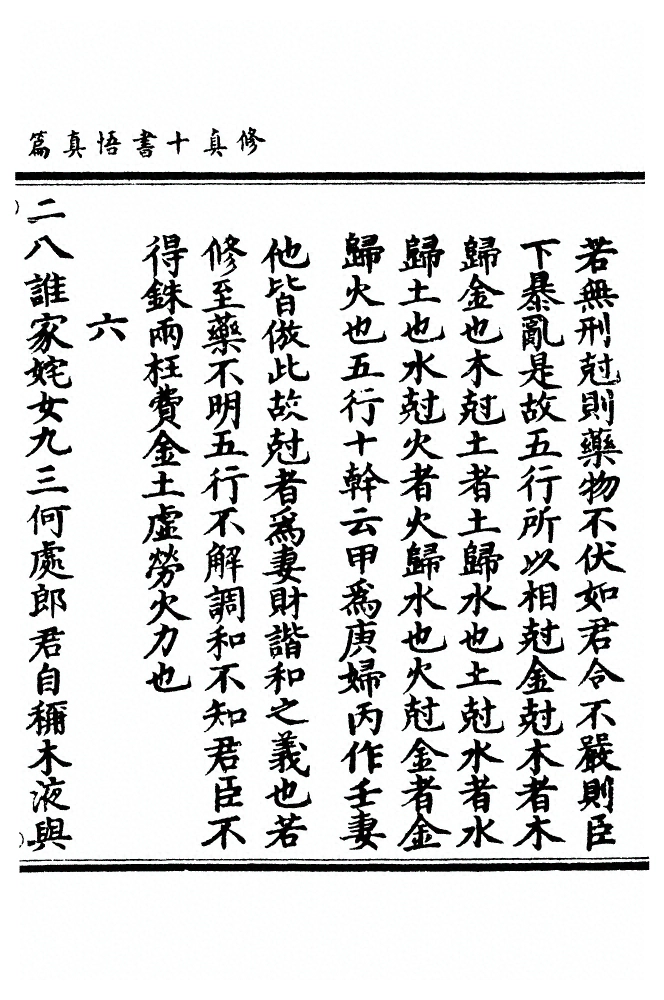 修真十書悟真篇
若無刑尅則藥物不伏如君令不嚴則臣
下暴亂是故五行所以相尅金尅木者木
歸金也木尅土者土歸木也土尅水者水
歸土也水尅火者火歸水也火尅金者金
歸火也五行十幹云甲爲庚婦丙作壬妻
他皆倣此故尅者爲妻財諧和之義也若
修至藥不明五行不解調和不知君臣不
得銖兩枉費金土虛勞火力也
六
二八誰家姹女九三何處郎君自稱木液與